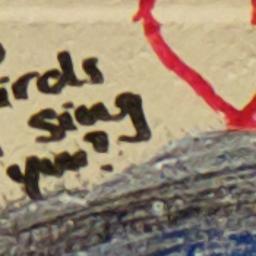 irds
sing
you?